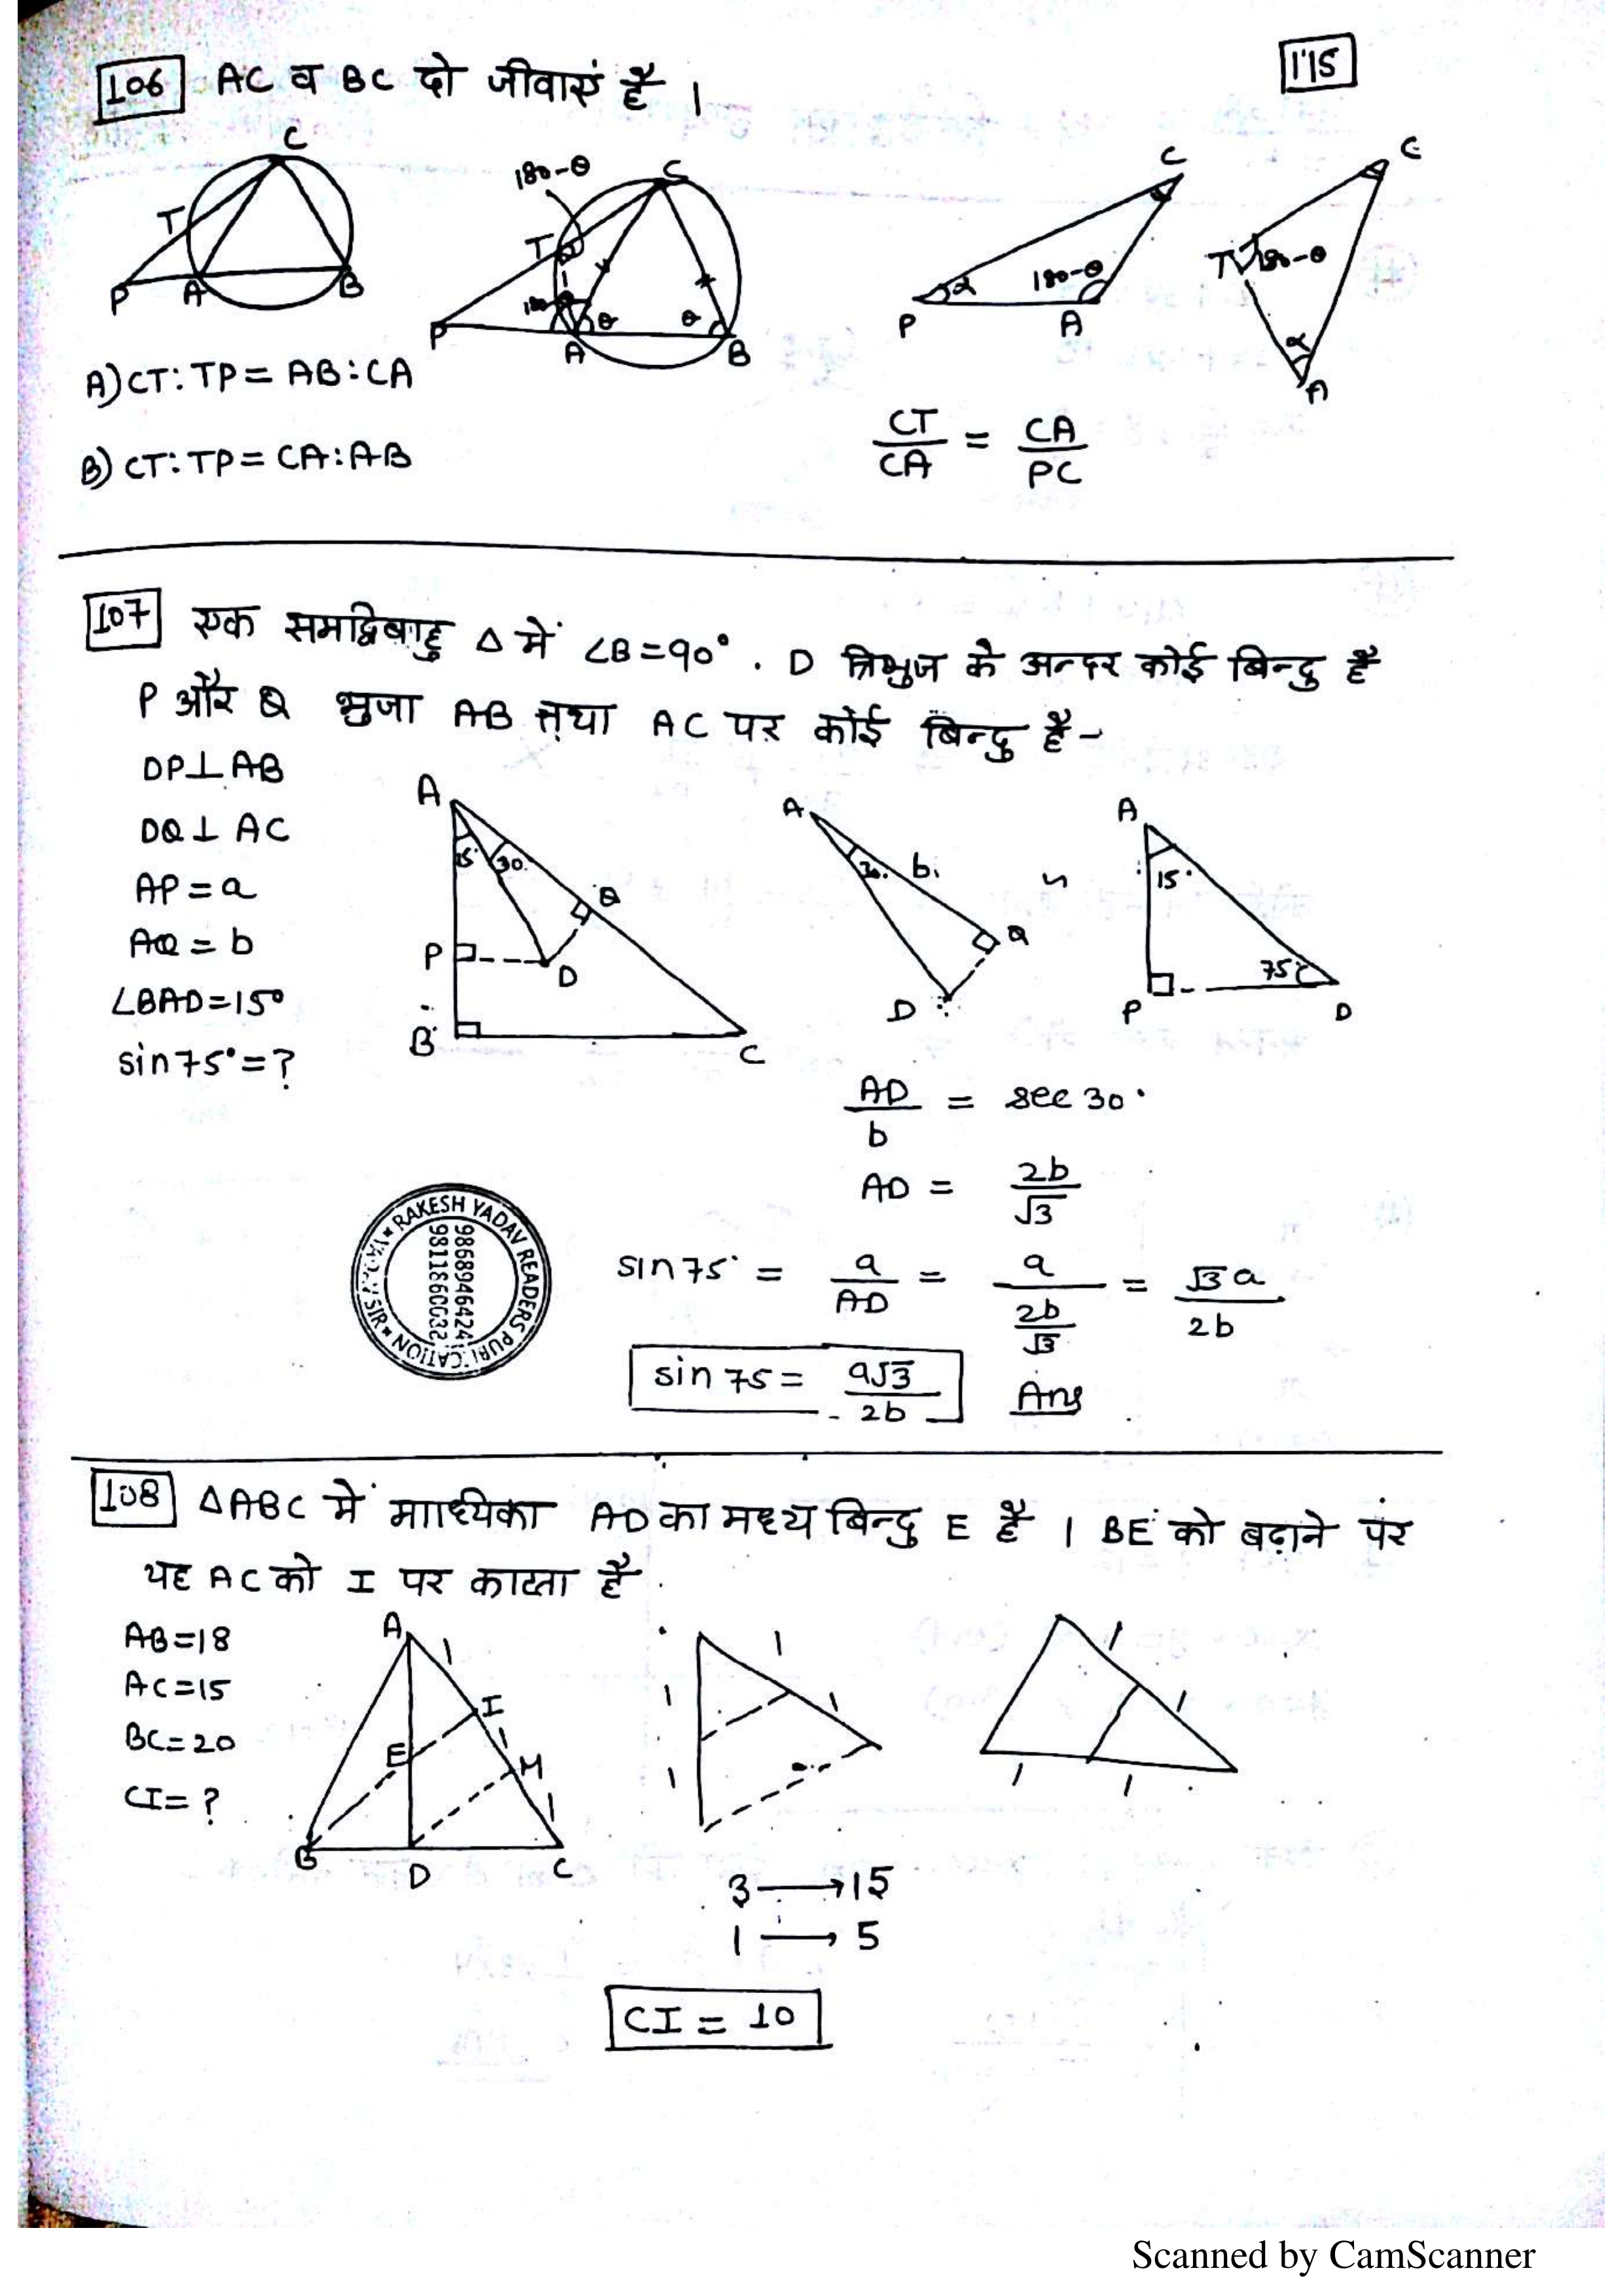 106 AC व BC दो जीवाएं है ।
115
C
T
P A B
180-θ
C
T
180-θ
θ θ
P A B
C
α 180-θ
P A
C
T 180-θ
α
A
A) CT:TP = AB:CA
B) CT:TP = CA:AB
CT/CA = CA/PC
107 एक समद्विबाहु Δ में ∠B=90°. D त्रिभुज के अन्दर कोई बिन्दु है
P और Q भुजा AB तथा AC पर कोई बिन्दु है-
DP⊥AB
DQ⊥ AC
AP = a
AQ = b
∠BAD=15°
sin75°=?
A
15° 30°
Q
P D
B C
A
30° b
Q
D
∽
A
15°
75°
P D
AD/b = sec 30°
AD = 2b/√3
sin75° = a/AD = a/(2b/√3) = √3a/2b
sin 75 = a√3/2b Ans
RAKESH YADAV READERS PUBLICATION
YADAV SIR
9868946424
9811860032
108 ΔABC में माध्यिका AD का मध्य बिन्दु E है । BE को बढ़ाने पर
यह AC को I पर काटता है
AB=18
AC=15
BC=20
CI= ?
A
1
I
E
1
M
1
B D C
1
1 1
1
1
1
1 1
3 → 15
1 → 5
CI = 10
Scanned by CamScanner